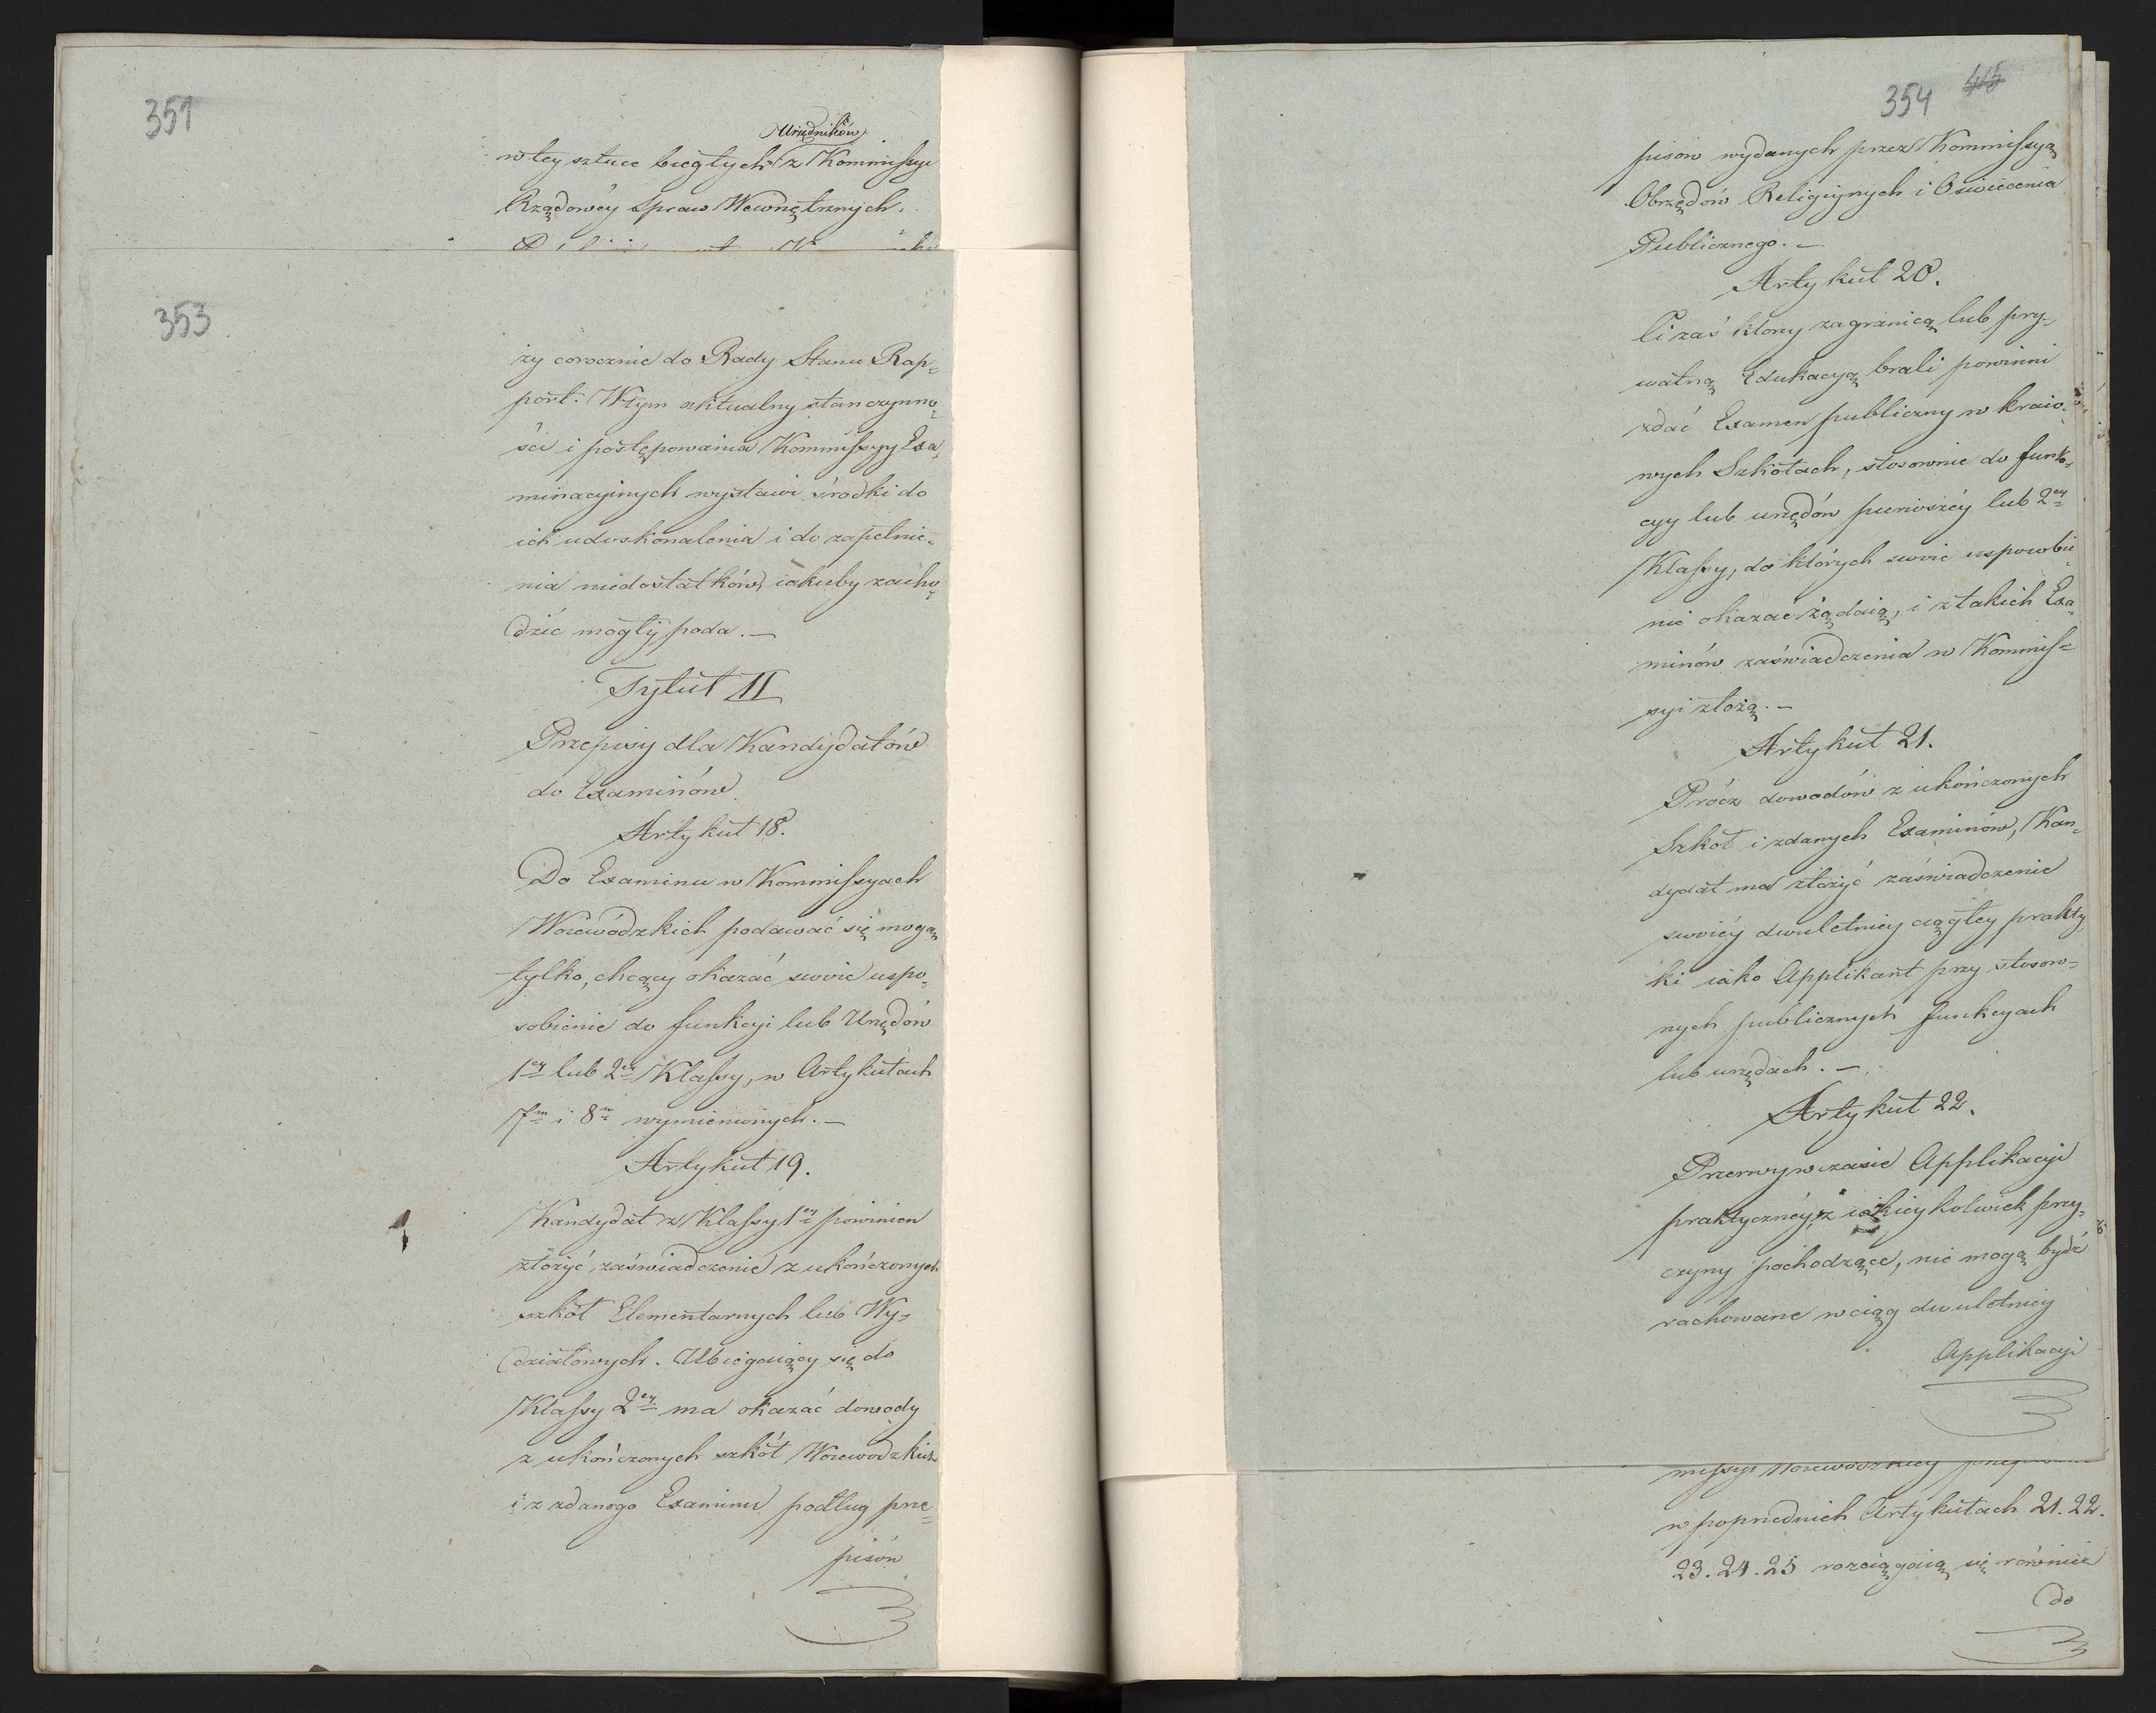 351
Urzędników
w tey sztuce biegłych z Kommissyi
Rządowéy Spraw Wewnętrznych.
353
ży corocznie do Rady Stanu Rap=
port. W tym aktualny stan czynno=
ści i postępowania Kommissyy Exa=
minacyinych wystawi środki do
ich udoskonalenia i do zapełnie=
nia niedostatków, iakieby zacho=
dzić mogły poda. —
Tytuł II
Przepisy dla Kandydatów
do Examinów
Artykuł 18.
Do Examinu w Kommissyach
Woiewódzkich podawać się mogą
tylko, chcący okazać swoie uspo=
sobienie do funkcyi lub Urzędów
1ey lub 2ey Klassy, w Artykułach
7m i 8m wymienionych. —
Artykuł 19.
Kandydat z Klassy 1ey powinien
złożyć zaświadczenie z ukończonych
szkół Elementarnych lub Wy=
działowych. Ubiegaiący się do
Klassy 2ey ma okazać dowody
z ukończonych szkół Woiewodzkich
i z zdanego Examinu podług prze=
pisów
354 415
pisow wydanych przez Kommissyą
Obrzędów Religiynych i Oswiecenia
Publicznego. —
Artykuł 20.
Ci zaś którzy zagranicą lub pry=
watną Edukacyą brali powinni
zdać Examen publiczny w kraio=
wych Szkołach, stosownie do funk=
cyy lub urzędów pierwszéy lub 2ey
Klassy, do których swoie usposobie=
nie okazać żądaią, i z takich Exa=
minów zaświadczenia w Kommis=
syi złożą. —
Artykuł 21.
Prócz dowodów z ukończonych
Szkół i zdanych Examinów, Kan=
dydat ma złożyć zaświadczenie
swoiéy dwuletniey ciągłey prakty=
ki iako Applikant przy stosow=
nych publicznych funkcyach
lub urzędach. —
Artykuł 22.
Przerwy w czasie Applikacyi
praktycznéy z iakieykolwiek przy=
czyny pochodzące, nie mogą bydź
rachowane w ciąg dwuletniey
Applikacyi
missyi Woiewodzkiey
w poprzednich Artykułach 21. 22.
23. 24. 25 rozciągaią się również
do